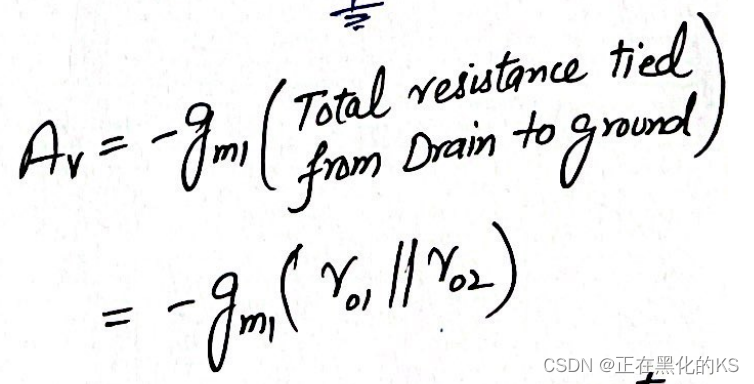 Av = -gm1 ( Total resistance tied
from Drain to ground )
= -gm1 ( ro1 || ro2 )
CSDN @正在黑化的KS